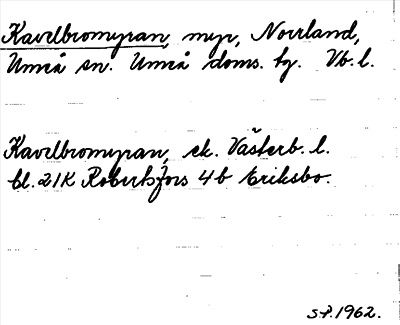 Kavelbromyran, myr, Norrland,
Umeå sn. Umeå doms. tg. Vb. l.
Kavelbromyran, ek. Västerb. l.
bl. 21K Robertsfors 4b Eriksbo.
S.P. 1962.